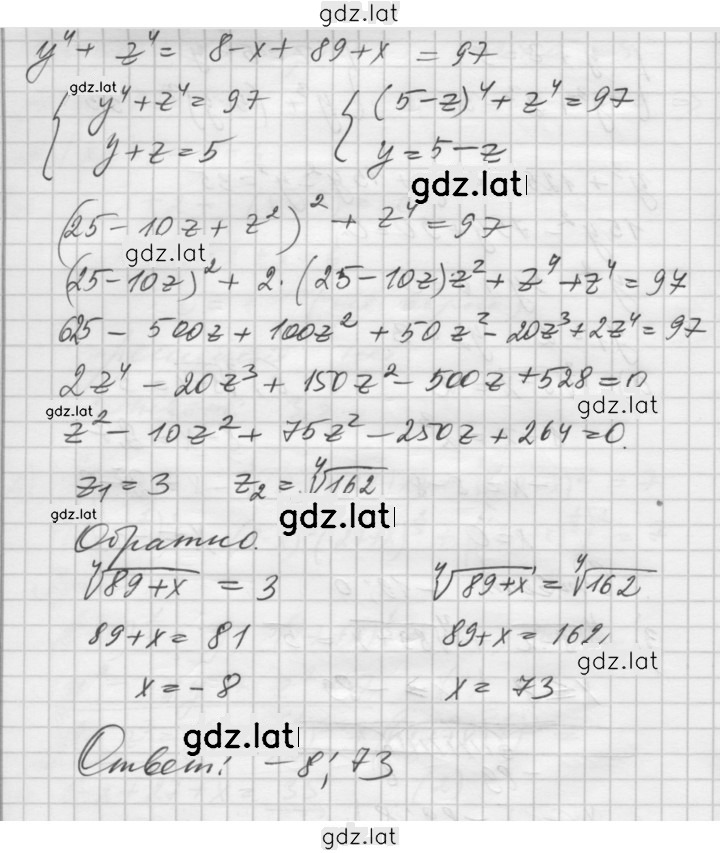 gdz.lat
y⁴ + z⁴ = 8-x + 89+x = 97
gdz.lat
{ y⁴+z⁴= 97 { (5-z)⁴ + z⁴ = 97
y+z=5 y=5-z
gdz.lat
(25-10z+z²)² + z⁴ = 97
gdz.lat
(25-10z)² + 2·(25-10z)·z² + z⁴ + z⁴ = 97
625 - 500z + 100z² + 50z² - 20z³ + 2z⁴ = 97
2z⁴ - 20z³ + 150z² - 500z + 528 = 0
gdz.lat gdz.lat
z² - 10z² + 75z² - 250z + 264 = 0.
z₁ = 3 z₂ = ⁴√162
gdz.lat gdz.lat
Обратно.
⁴√89+x = 3 ⁴√89+x = ⁴√162
89+x = 81 89+x = 162
gdz.lat
x = -8 x = 73
gdz.lat
Ответ: -8; 73
gdz.lat